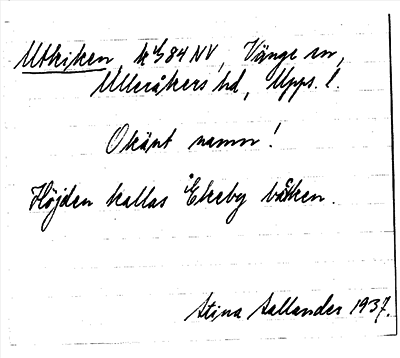 Utkiken, kbl 84 NV, Vänge sn,
Ulleråkers hd, Upps. l.
Okänt namn!
Höjden kallas Ekeby backen.
Stina Sallander 1937.